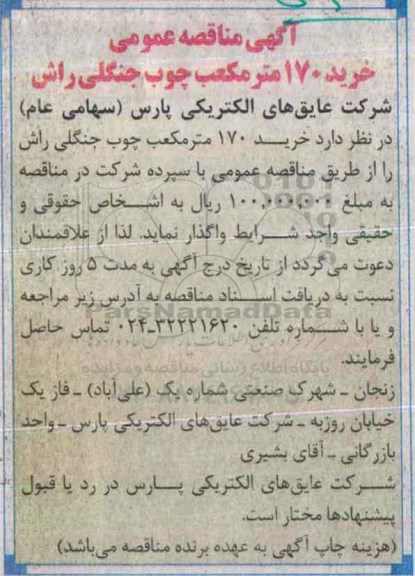 آگهی مناقصه عمومی
خرید ۱۷۰ متر مکعب چوب جنگلی راش
شرکت عایق‌های الکتریکی پارس (سهامی عام)
در نظر دارد خرید ۱۷۰ مترمکعب چوب جنگلی راش
را از طریق مناقصه عمومی با سپرده شرکت در مناقصه
به مبلغ ۱۰۰,۰۰۰,۰۰۱ ریال به اشخاص حقوقی و
حقیقی واجد شرایط واگذار نماید. لذا از علاقمندان
دعوت می‌گردد از تاریخ درج آگهی به مدت ۵ روز کاری
نسبت به دریافت اسناد مناقصه به آدرس زیر مراجعه
و یا با شماره تلفن ۳۲۲۲۱۶۲۰-۰۲۴ تماس حاصل
فرمایند.
زنجان ـ شهرک صنعتی شماره یک (علی‌آباد) ـ فاز یک
خیابان روزبه ـ شرکت عایق‌های الکتریکی پارس ـ واحد
بازرگانی ـ آقای بشیری
شرکت عایق‌های الکتریکی پارس در رد یا قبول
پیشنهادها مختار است.
(هزینه چاپ آگهی به عهده برنده مناقصه می‌باشد)
ParsNamadData
پایگاه اطلاع رسانی مناقصه و مزایده